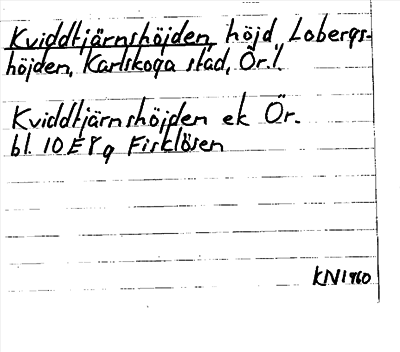 Kviddtjärnshöjden, höjd, Lobergs-
höjden, Karlskoga stad, Ör.l.
Kviddtjärnshöjden ek Ör.
bl. 10E8g Fisklösen
KN1960